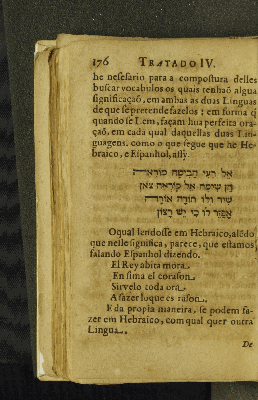 176 TRATADO IV.
he nesesario para a compostura delles
buscar vocabulos os quais tenhaõ algua
significaçaõ, em ambas as duas Linguas
de que se pretende fazelos; em forma q̃
quando se Lem, façam hua perfeita ora-
çaõ, em cada qual daquellas duas Lin-
guagens. como o que segue que he He-
braico, e Espanhol, assy.
אל רעי
הן שימה אל קוראה צאן
שיר ולו תודה אורה
לו כי יש רצון
O qual lendosse em Hebraico, alẽdo
que nelle significa, parece, que estamos
falando Espanhol dizendo.
El Rey abita mora.
En sima el corason.
Sirvelo toda ora.
A fazer lo que es rason.
E da propia maneira, se podem fa-
zer em Hebraico, com qual quer outra
Lingua.
De